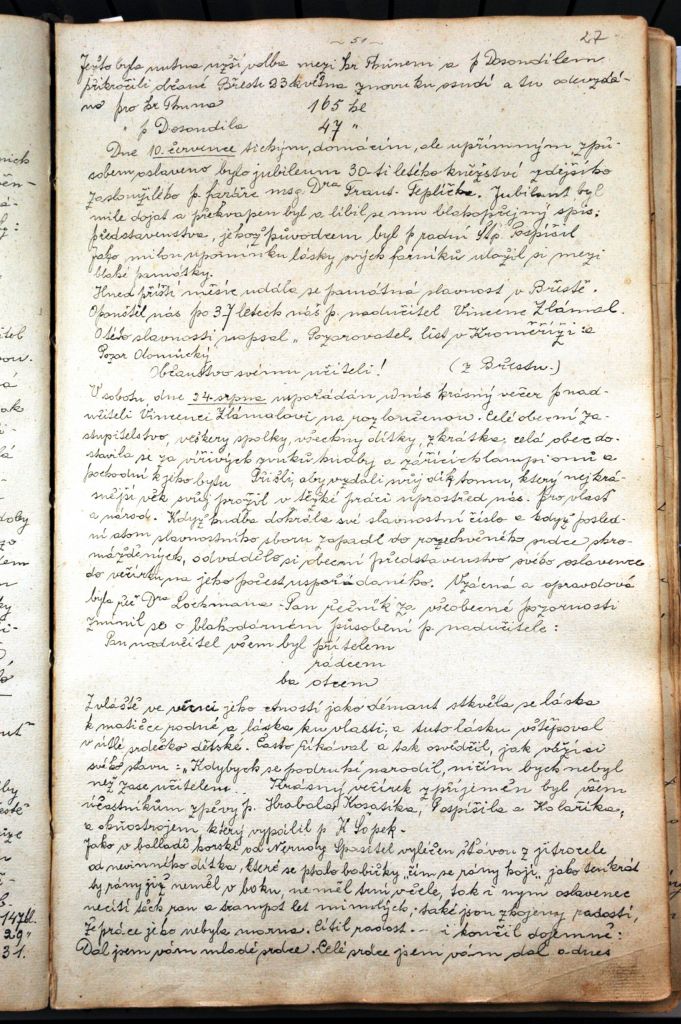 - 51 -
27
Ježto byla nutna užší volba mezi hr. Thunem a p Dosoudilem
přikročili občané Břestu 23 května znovu ku osudí a tu odevzdá-
no pro hr Thuna 165 hl
" p Dosoudila 47 "
Dne 10. července tichým, domácím, ale upřímným způ-
sobem oslaveno bylo jubileum 30-ti letého kněžství zdejšího
zasloužilého p. faráře msg. Dra Frant. Tepličku. Jubilant byl
mile dojat a překvapen byl a líbil se mu blahopřejný spis,
představenstva, jehož původcem byl p radní Pospíšil
jako milou upomínku lásky svých farníků uložil si mezi
památky.
Hned příští měsíc udála se památná slavnost v Břestě.
Opouštěl nás po 37 letech náš p. nadučitel Vincenc Zlámal.
O této slavnosti napsal „Pozorovatel" list v Kroměříži a
Pozor Olomúcký
Občanstvo svému učiteli! (z Břestu.)
V sobotu, dne 24 srpna uspořádán u nás krásný večer p nad-
učiteli Vincenci Zlámalovi na rozloučenou. Celé obecní za-
stupitelstvo, veškery spolky, všechny dítky, zkrátka, celá obec do-
stavila se za vířivých zvuků hudby a zářících lampionů a
pochodní k jeho bytu. Přišli, aby vzdali svůj dík tomu, který nejkrá-
snější věk svůj prožil v těžké práci uprostřed nás. Pro vlast
a národ. Když hudba dohrála své slavnostní číslo a když posled-
ní atom slavnostního sboru zapadl do rozechvěného srdce shro-
mážděných, odvádělo si obecní představenstvo svého oslavence
do večírku na jeho počest uspořádaného. Vzácná a opravdová
byla řeč Dra Lochmana. Pan řečník za všeobecné pozornosti
zmínil se o blahodárném působení p. nadučitele:
Pan nadučitel všem byl přítelem
rádcem
ba otcem
Zvláště ve věnci jeho ctností jako démant stkvěla se láska
k matičce rodné a láska ku vlasti, a tuto lásku vštěpoval
v útlé srdečko dětské. Často říkával a tak osvědčil, jak váží si
svého stavu: „Kdybych se podruhé narodil, ničím bych nebyl
než zase učitelem... Krásný večírek zpříjemněn byl všem
účastníkům zpěvy p. Hrabala, Kosatíka, Pospíšila a Kolaříka,
a ohňostrojem který vypálil p K Šopek.
Jako v balladě horské od Nerudy Spasitel vyléčen šťávou z jitrocele
od nevinného dítka, které se ptalo babičky, čím se rány hojí, jako tenkrát
ty rány již neměl v boku, neměl trní v čele, tak i nyní oslavenec
necítí těch ran a trampot let minulých, také jsou zhojeny radostí,
že práce jeho nebyla marna. Cítil radost... i končil dojemně:
Dal jsem vám mladé srdce. Celé srdce jsem vám dal a dnes